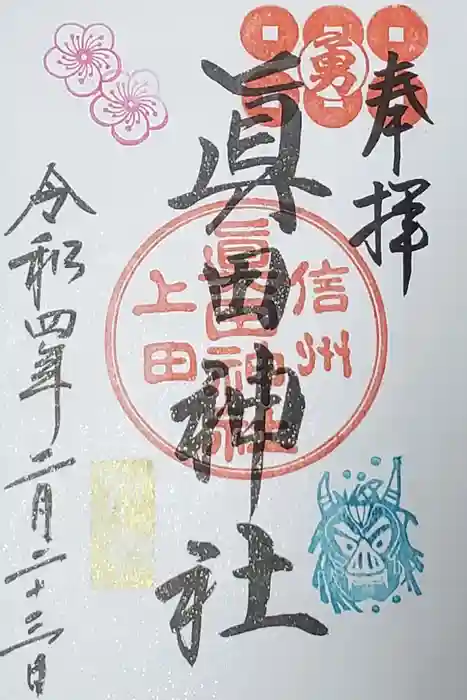 奉拝
勇
眞田神社
信州
眞田神社
上田
令和四年二月二十三日